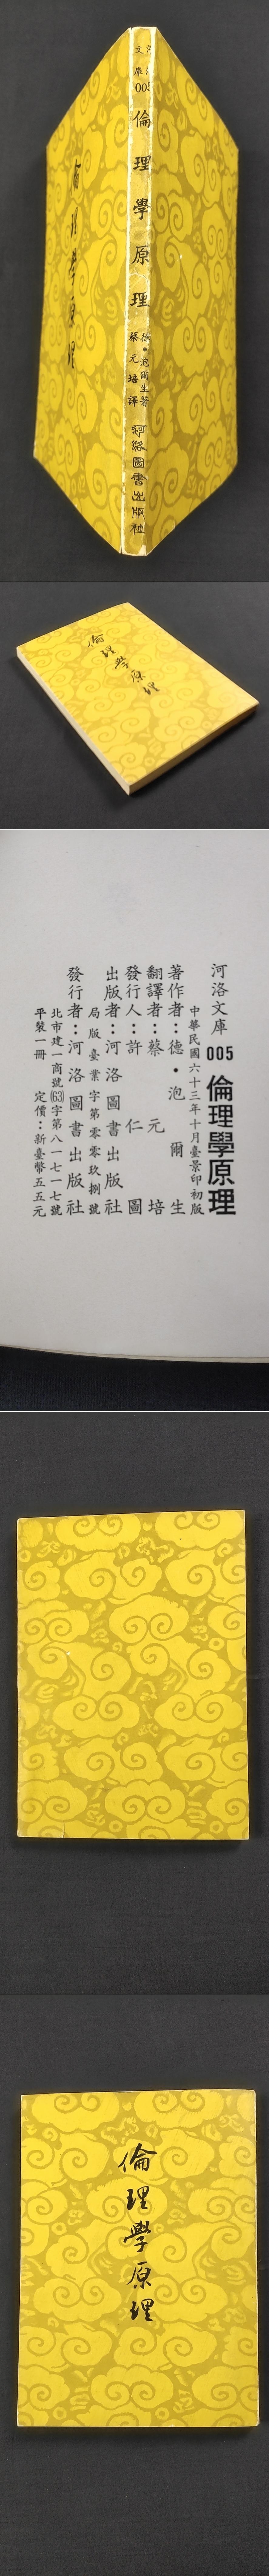 河洛
文庫
005
倫理學原理
德・泡爾生著
蔡元培譯
河洛圖書出版社
倫理學原理
倫理學原理
河洛文庫 005 倫理學原理
中華民國六十三年十月臺景印初版
著作者：德・泡爾生
翻譯者：蔡元培
發行人：許仁圖
出版者：河洛圖書出版社
局版臺業字第零零玖捌號
發行者：河洛圖書出版社
北市建一商號(63)字第八一七一七號
平裝一冊 定價：新臺幣五五元
倫理學原理